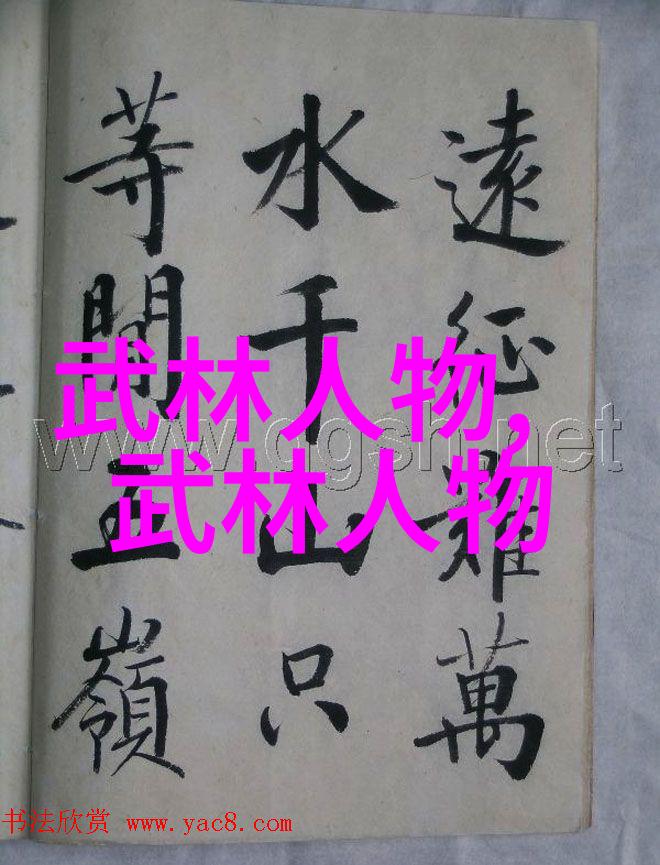 遠征難萬
水千山只
等閒五嶺
武林人物,
武林人物
书法欣赏 www.yac8.com